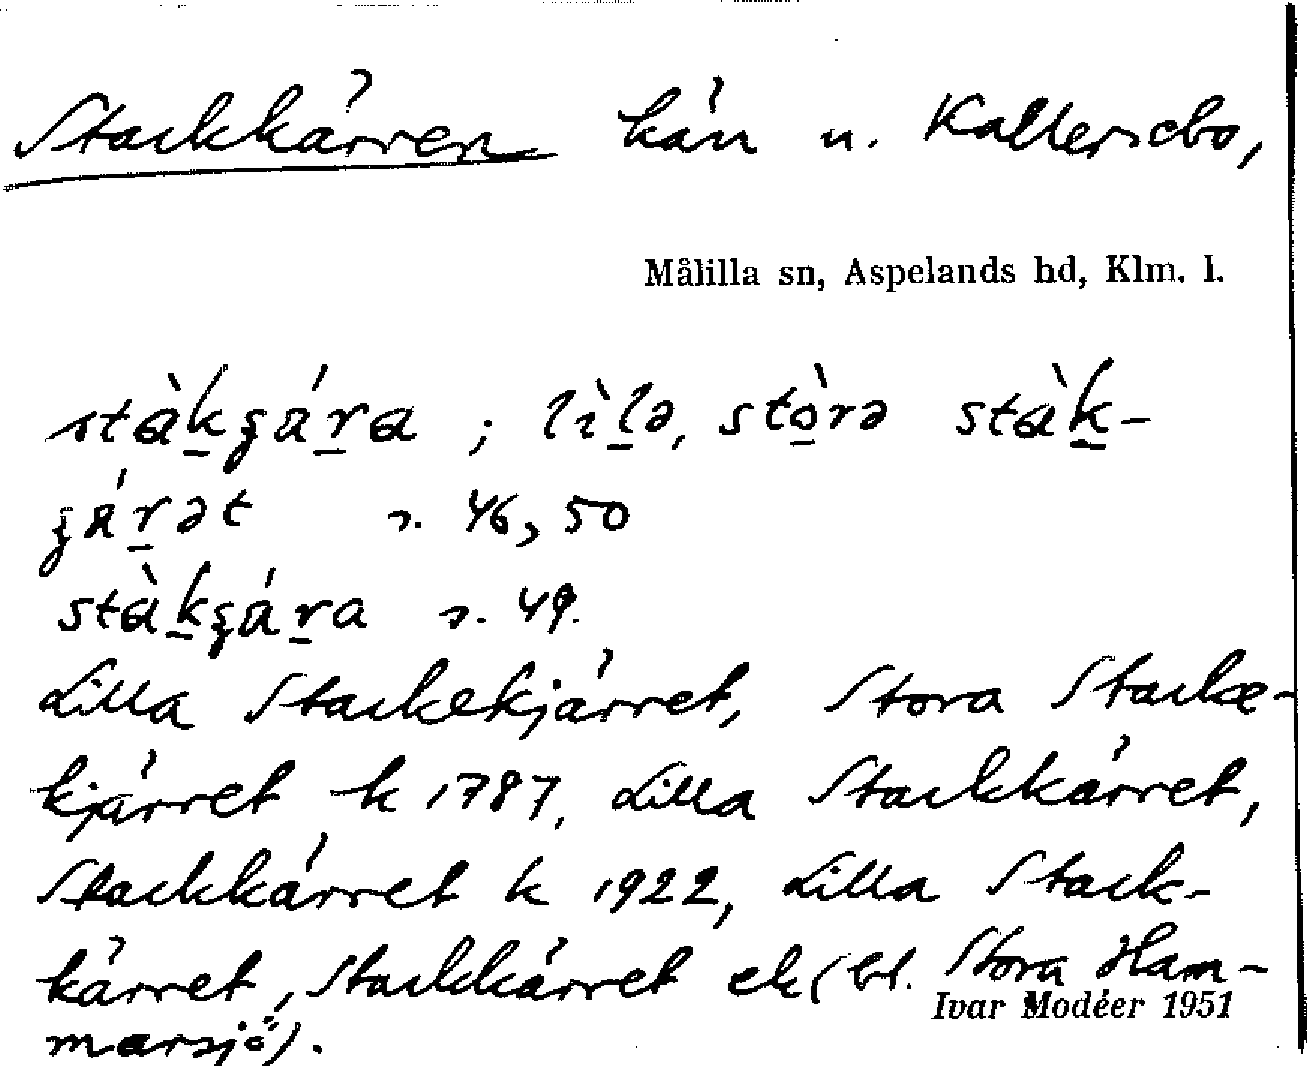 Stackkärren kän n. Kallersebo,
Målilla sn, Aspelands hd, Klm. l.
stàkʒára ; lìlə, stòrə stàk-
ʒárət s. 46, 50
stàkʒára s. 49.
Lilla Stackekjärret, Stora Stacke-
kjärret k 1787, Lilla Stackkärret,
Stackkärret k 1922, Lilla Stack-
kärret, Stackkärret ek (bl. Stora Ham-
marsjö).
Ivar Modéer 1951